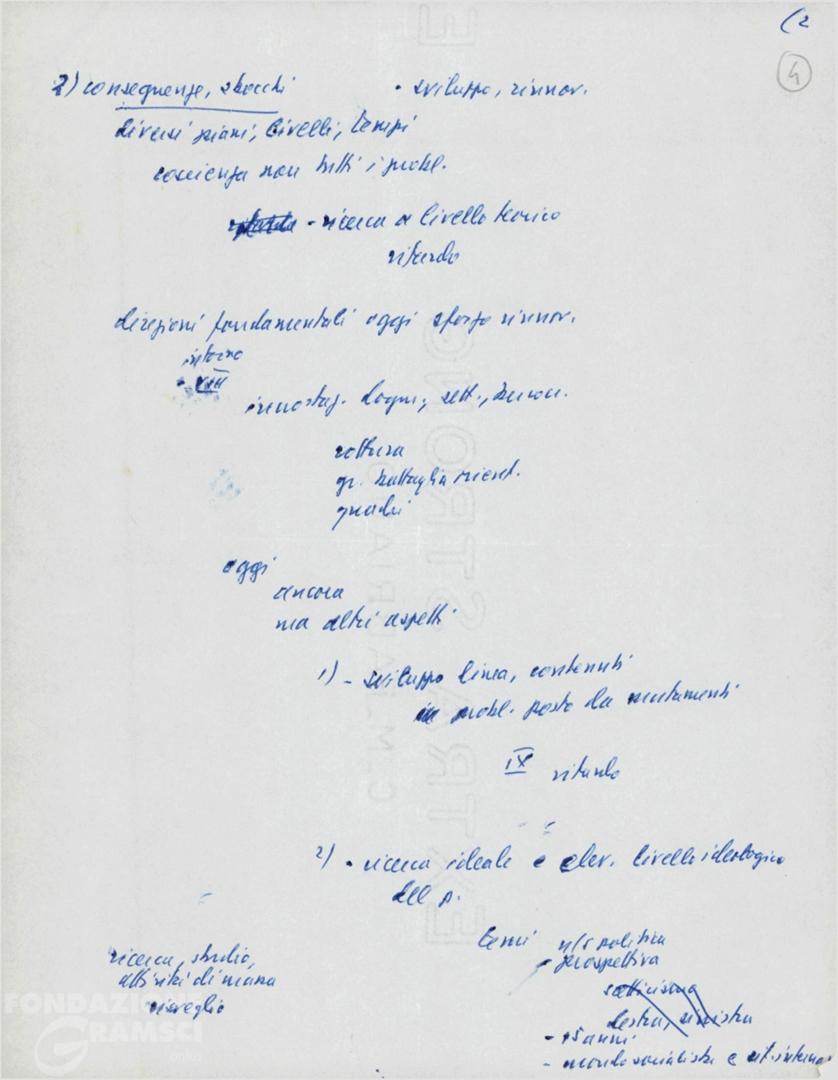 (2
4
2) conseguenze, sbocchi • sviluppo, rinnov.
diversi piani, livelli, tempi
coscienza non tutti i probl.
- ricerca a livello teorico
ritardo
direzioni fondamentali oggi sforzo rinnov.
intorno
• VIII
incrostaz. dogm., sett.,
rottura
gr. battaglia orient.
quadri
oggi
ancora
ma altri aspetti
1) - sviluppo linea, contenuti
probl. posto da mutamenti
IX ritardo
2) • ricerca ideale e elev. livello ideologico
del p.
temi n/s politica
- prospettiva
ricerca, studio,
attività di massa
risveglio
scetticismo
destra, sinistra
- 15 anni
- mondo socialista e sit. internaz
EXTRA STRONG
FONDAZIONE
GRAMSCI
onlus